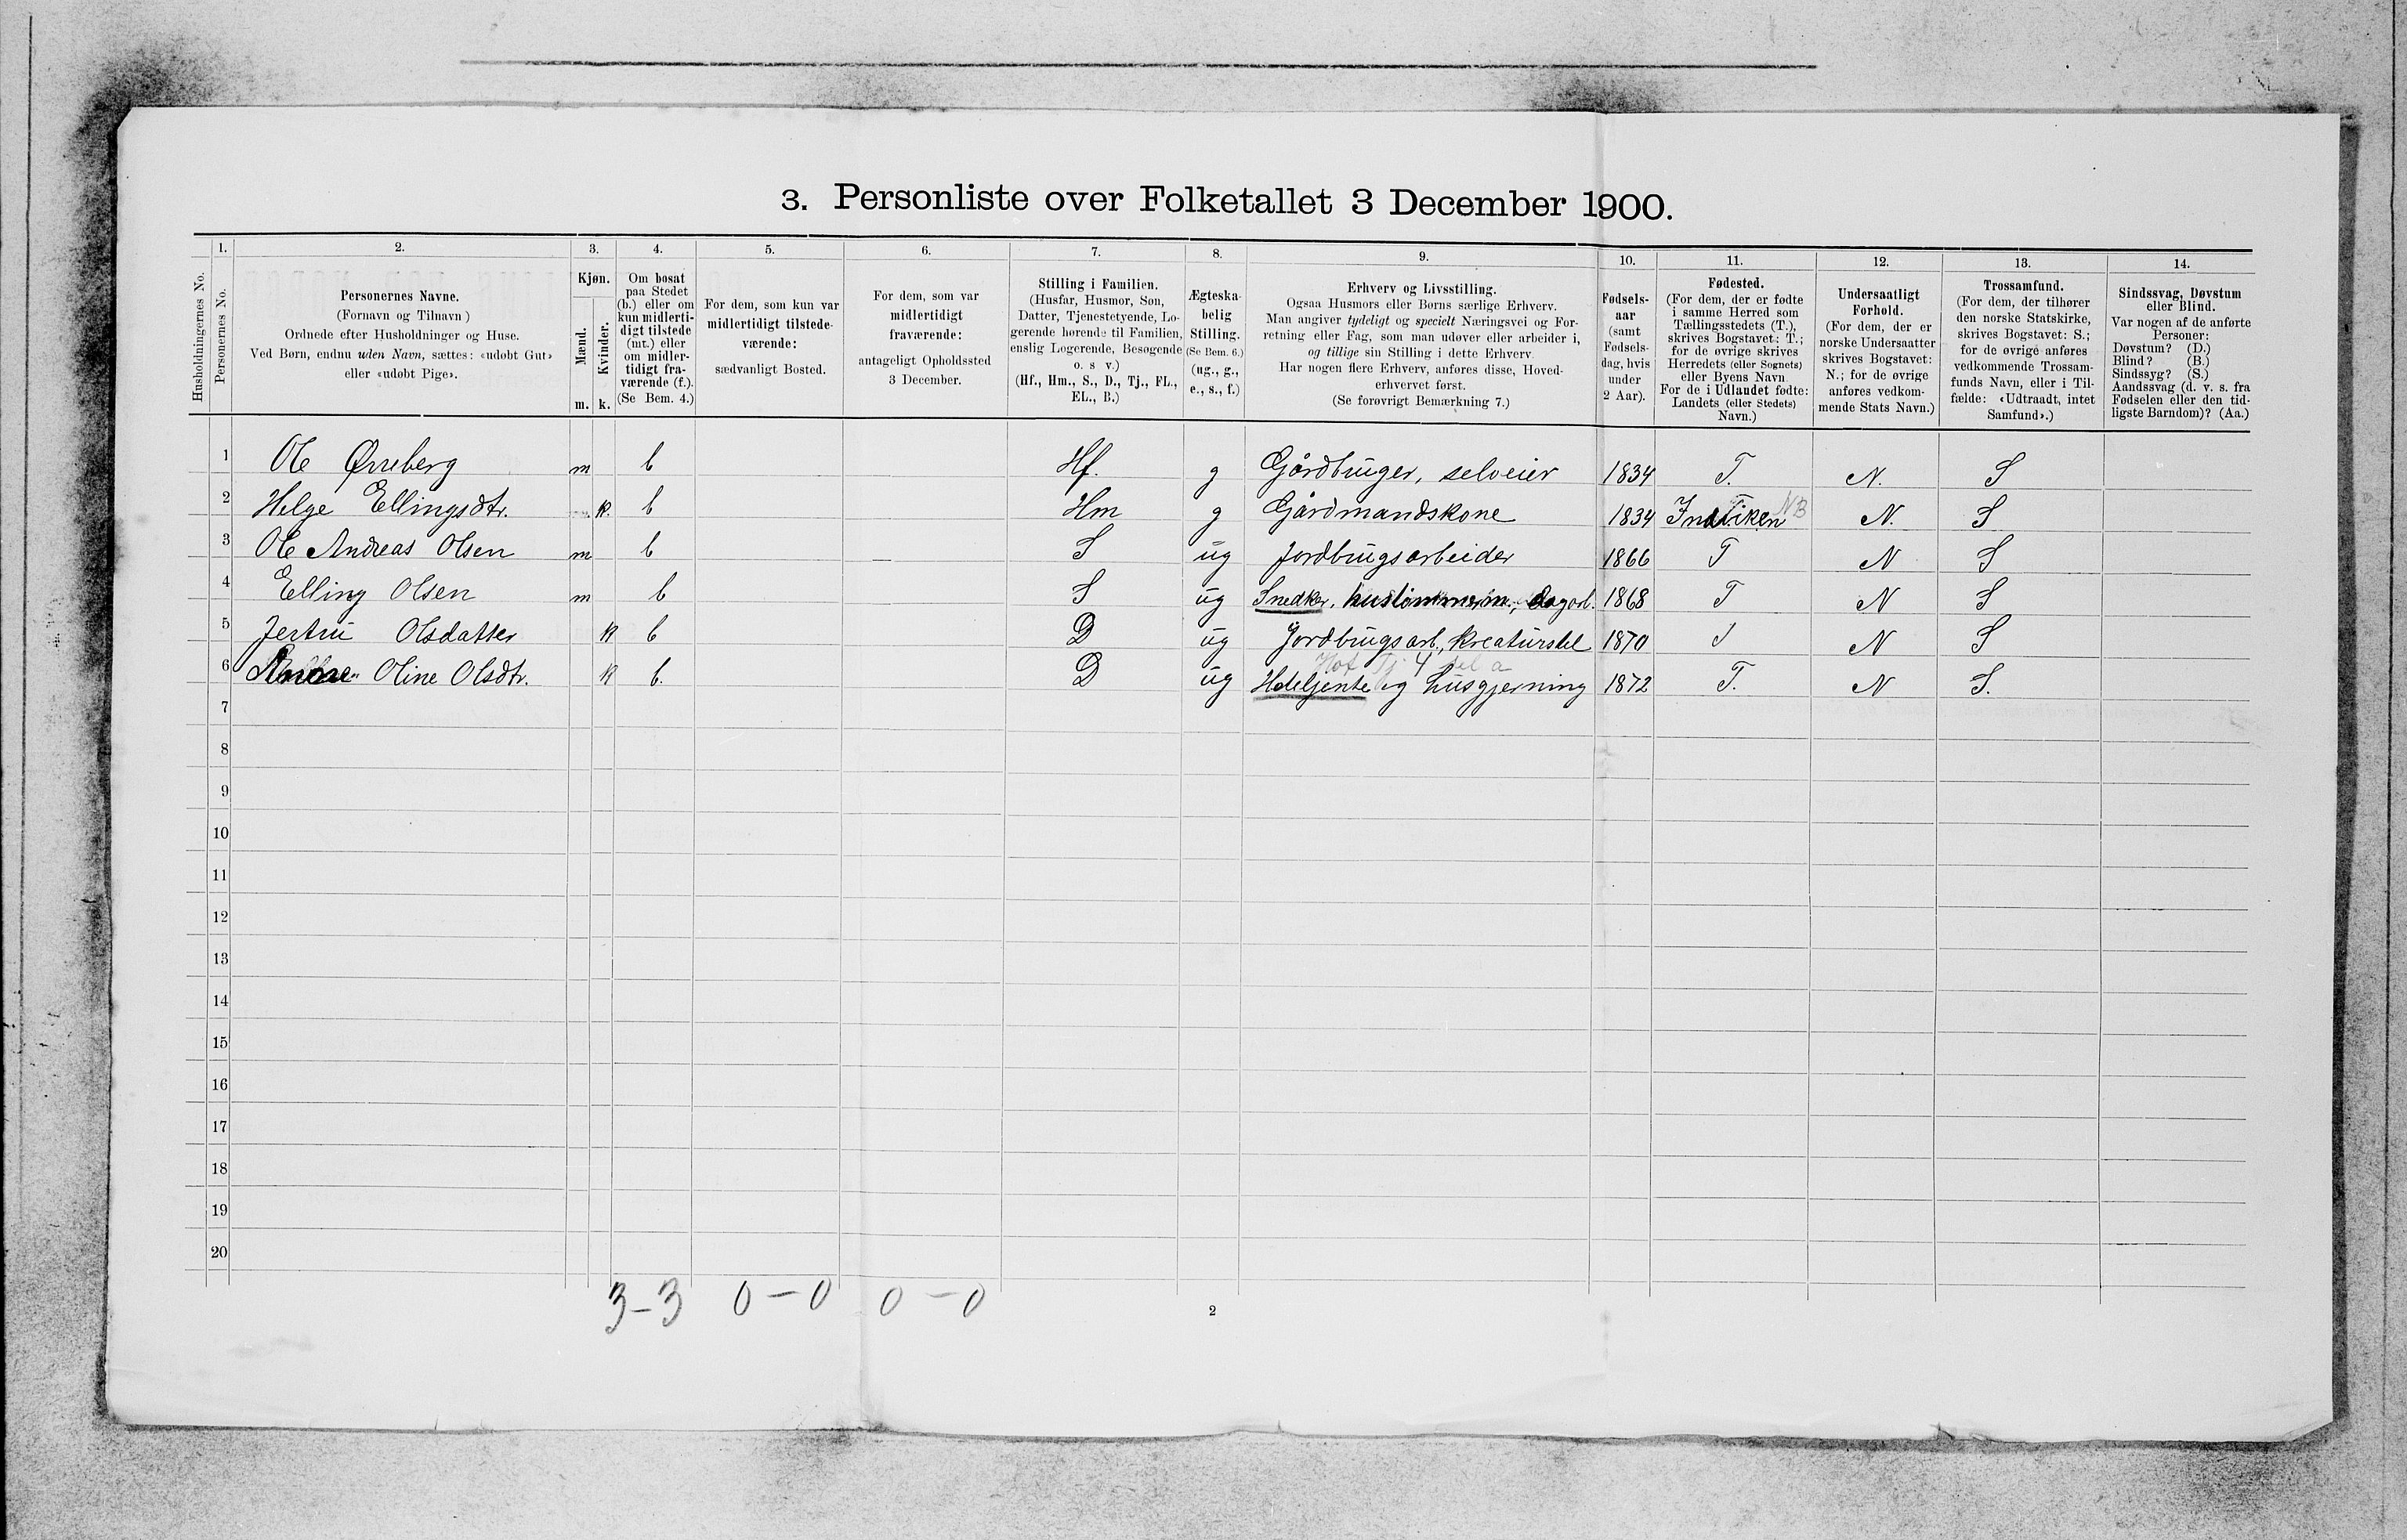 3. Personliste over Folketallet 3 December 1900.
1. 2. 3. 4. 5. 6. 7. 8. 9. 10. 11. 12. 13. 14.
Husholdningernes No.
Personernes No.
Personernes Navne.
(Fornavn og Tilnavn )
Ordnede efter Husholdninger og Huse.
Ved Børn, endnu uden Navn, sættes: «udøbt Gut»
eller «udøbt Pige».
Kjøn.
Mænd.
Kvinder.
m. k.
Om bosat
paa Stedet
(b.) eller om
kun midlerti-
digt tilstede
(mt.) eller
om midler-
tidigt fra-
værende (f.).
(Se Bem. 4.)
For dem, som kun var
midlertidigt tilstede-
værende:
sædvanligt Bosted.
For dem, som var
midlertidigt
fraværende:
antageligt Opholdssted
3 December.
Stilling i Familien.
(Husfar, Husmor, Søn,
Datter, Tjenestetyende, Lo-
gerende hørende til Familien,
enslig Logerende, Besøgende
o. s v.)
(Hf., Hm., S., D., Tj., FL.,
EL., B.)
Ægteska-
belig
Stilling.
(Se Bem. 6.)
(ug., g.,
e., s., f.)
Erhverv og Livsstilling.
Ogsaa Husmors eller Børns særlige Erhverv.
Man angiver tydeligt og specielt Næringsvei og For-
retning eller Fag, som man udøver eller arbeider i,
og tillige sin Stilling i dette Erhverv.
Har nogen flere Erhverv, anføres disse, Hoved-
erhvervet først.
(Se forøvrigt Bemærkning 7.)
Fødsels-
aar
(samt
Fødsels-
dag, hvis
under
2 Aar).
Fødested.
(For dem, der er fødte
i samme Herred som
Tællingsstedets (T.),
skrives Bogstavet: T.;
for de øvrige skrives
Herredets (eller Sognets)
eller Byens Navn
For de i Udlandet fødte:
Landets (eller Stedets)
Navn.)
Undersaatligt
Forhold.
(For dem, der er
norske Undersaatter
skrives Bogstavet:
N.; for de øvrige
anføres vedkom-
mende Stats Navn.)
Trossamfund.
(For dem, der tilhører
den norske Statskirke,
skrives Bogstavet: S.;
for de øvrige anføres
vedkommende Trossam-
funds Navn, eller i Til-
fælde: «Udtraadt, intet
Samfund».)
Sindssvag, Døvstum
eller Blind.
Var nogen af de anførte
Personer:
Døvstum? (D.)
Blind? (B.)
Sindssyg? (S.)
Aandssvag (d. v. s. fra
Fødselen eller den tid-
ligste Barndom)? (Aa.)
1 Ole Ørreberg m b Hf. g Gårdbruger, selveier 1834 T. N. S
2 Helge Ellingsdtr. k. b Hm g Gårdmandskone 1834 NB N. S
3 Ole Andreas Olsen m b S ug Jordbrugsarbeider 1866 T N S
4 Elling Olsen m b S ug Snedker, dagarb. 1868 T N S
5 Jertru Olsdatter k b D ug Jordbrugsarb., kreaturstel 1870 T N S
6 Oline Olsdtr. k b. D ug og husgjerning 1872 T. N S.
7
8
9
10
11
12
13
14
15
16
17
18
19
20
3-3 0-0 0-0
2